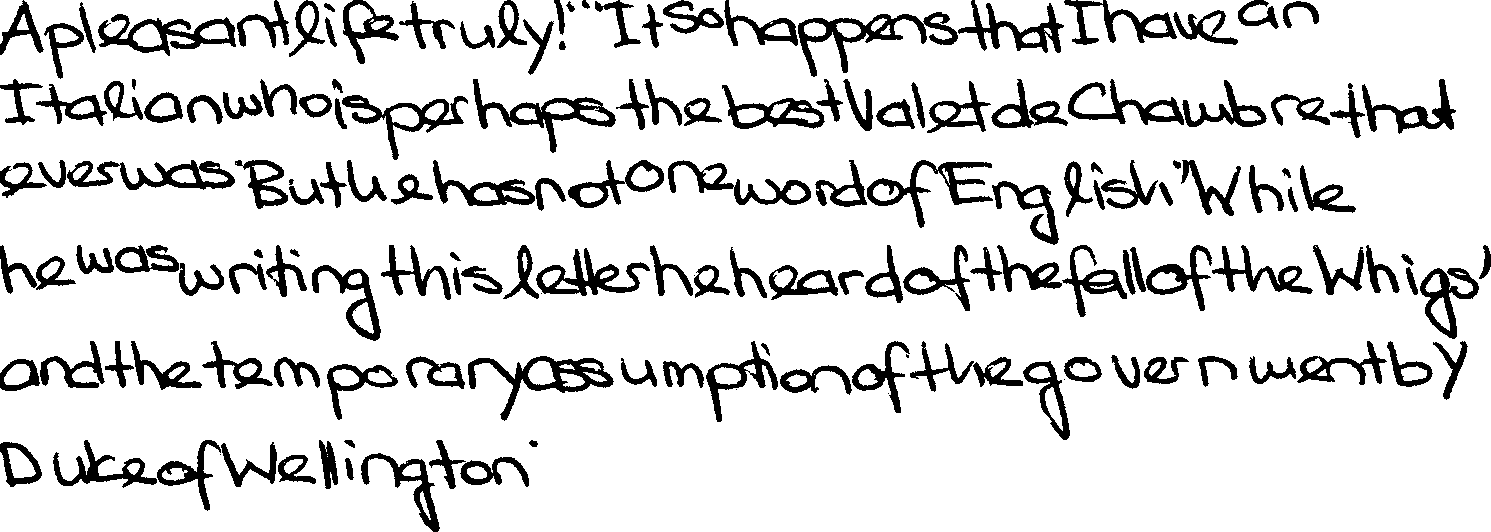 A pleasant life truly!" "It so happens that I have an
Italian who is perhaps the best Valet de Chambre that
ever was. But he has not one word of English." While
he was writing this letter he heard of the fall of the Whigs'
and the temporary assumption of the government by
Duke of Wellington.